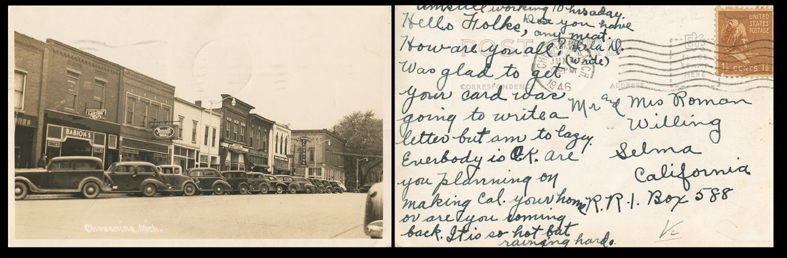 BABION'S
Chesaning, Mich.
am still working 10 hrs a day.
Hello Folks, Do you have
any meat.
How are you all,
(wide)
Was glad to get
your card was
going to write a
letter but am to lazy.
Everbody is O.K. are
you planning on
making Cal. your home
or are you coming
back. It is so hot but
raining hard.
POST
CORRESPONDENCE
ADDRESS
HERE
MICH.
1946
UNITED
STATES
POSTAGE
1½ CENTS 1½
Mr and Mrs Roman
Willing
Selma
California
R.R.1. Box 588